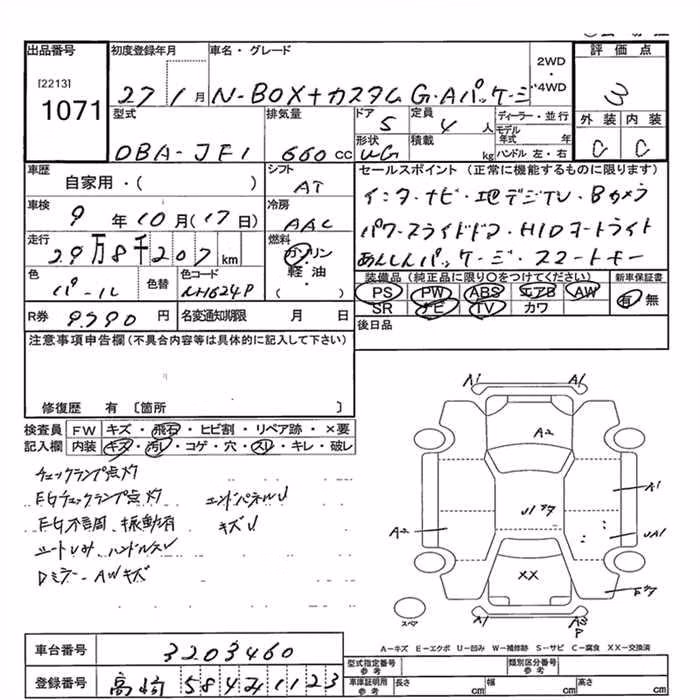 出品番号
[2213]
1071
初度登録年月
27 1月
車名・グレード
N-BOX+カスタム G・Aパッケージ
2WD・4WD
評価点
3
外装 内装
C C
型式
DBA-JF1
排気量
660cc
ドア
5
定員
4人
形状
積載 kg
ディーラー・並行
モデル年式 年
ハンドル 左・右
車歴
自家用・( )
シフト
AT
車検
9年10月(17日)
冷房
AAC
走行
29万8千207km
燃料
ガソリン
軽油
・
( )
色
パール
色替
色コード
NH624P
R券
9.990円
名変通知期限 月 日
セールスポイント (正常に機能するものに限ります)
インタナビ・地デジTV・Bカメラ
パワースライドドア・HIDオートライト
あんしんパッケージ・スマートキー
装備品(純正品に限り○をつけてください)
新車保証書
PS PW ABS エアB AW
有 無
SR ナビ TV カワ
後日品
注意事項申告欄(不具合内容等は具体的に記入して下さい)
修復歴 有 〔箇所 〕
検査員記入欄
FW キズ・飛石・ヒビ割・リペア跡・×要
内装 キズ・汚レ・コゲ・穴・スレ・キレ・破レ
チェックランプ点灯
EGチェックランプ点灯 エンドパネルU
EG不調 振動有 キズU
シートしみ ハンドルスレ
Dミラー・AWキズ
A1 A1
A2
A1
U1
A2
UA1
XX
A1
P
スペア
A-キズ E-エクボ U-凹み W-補修跡 S-サビ C-腐食 XX-交換済
車台番号
3203460
登録番号
高崎
型式指定番号
参考
類別区分番号
参考
車庫証明用
参考
長さ cm
幅 cm
高さ cm